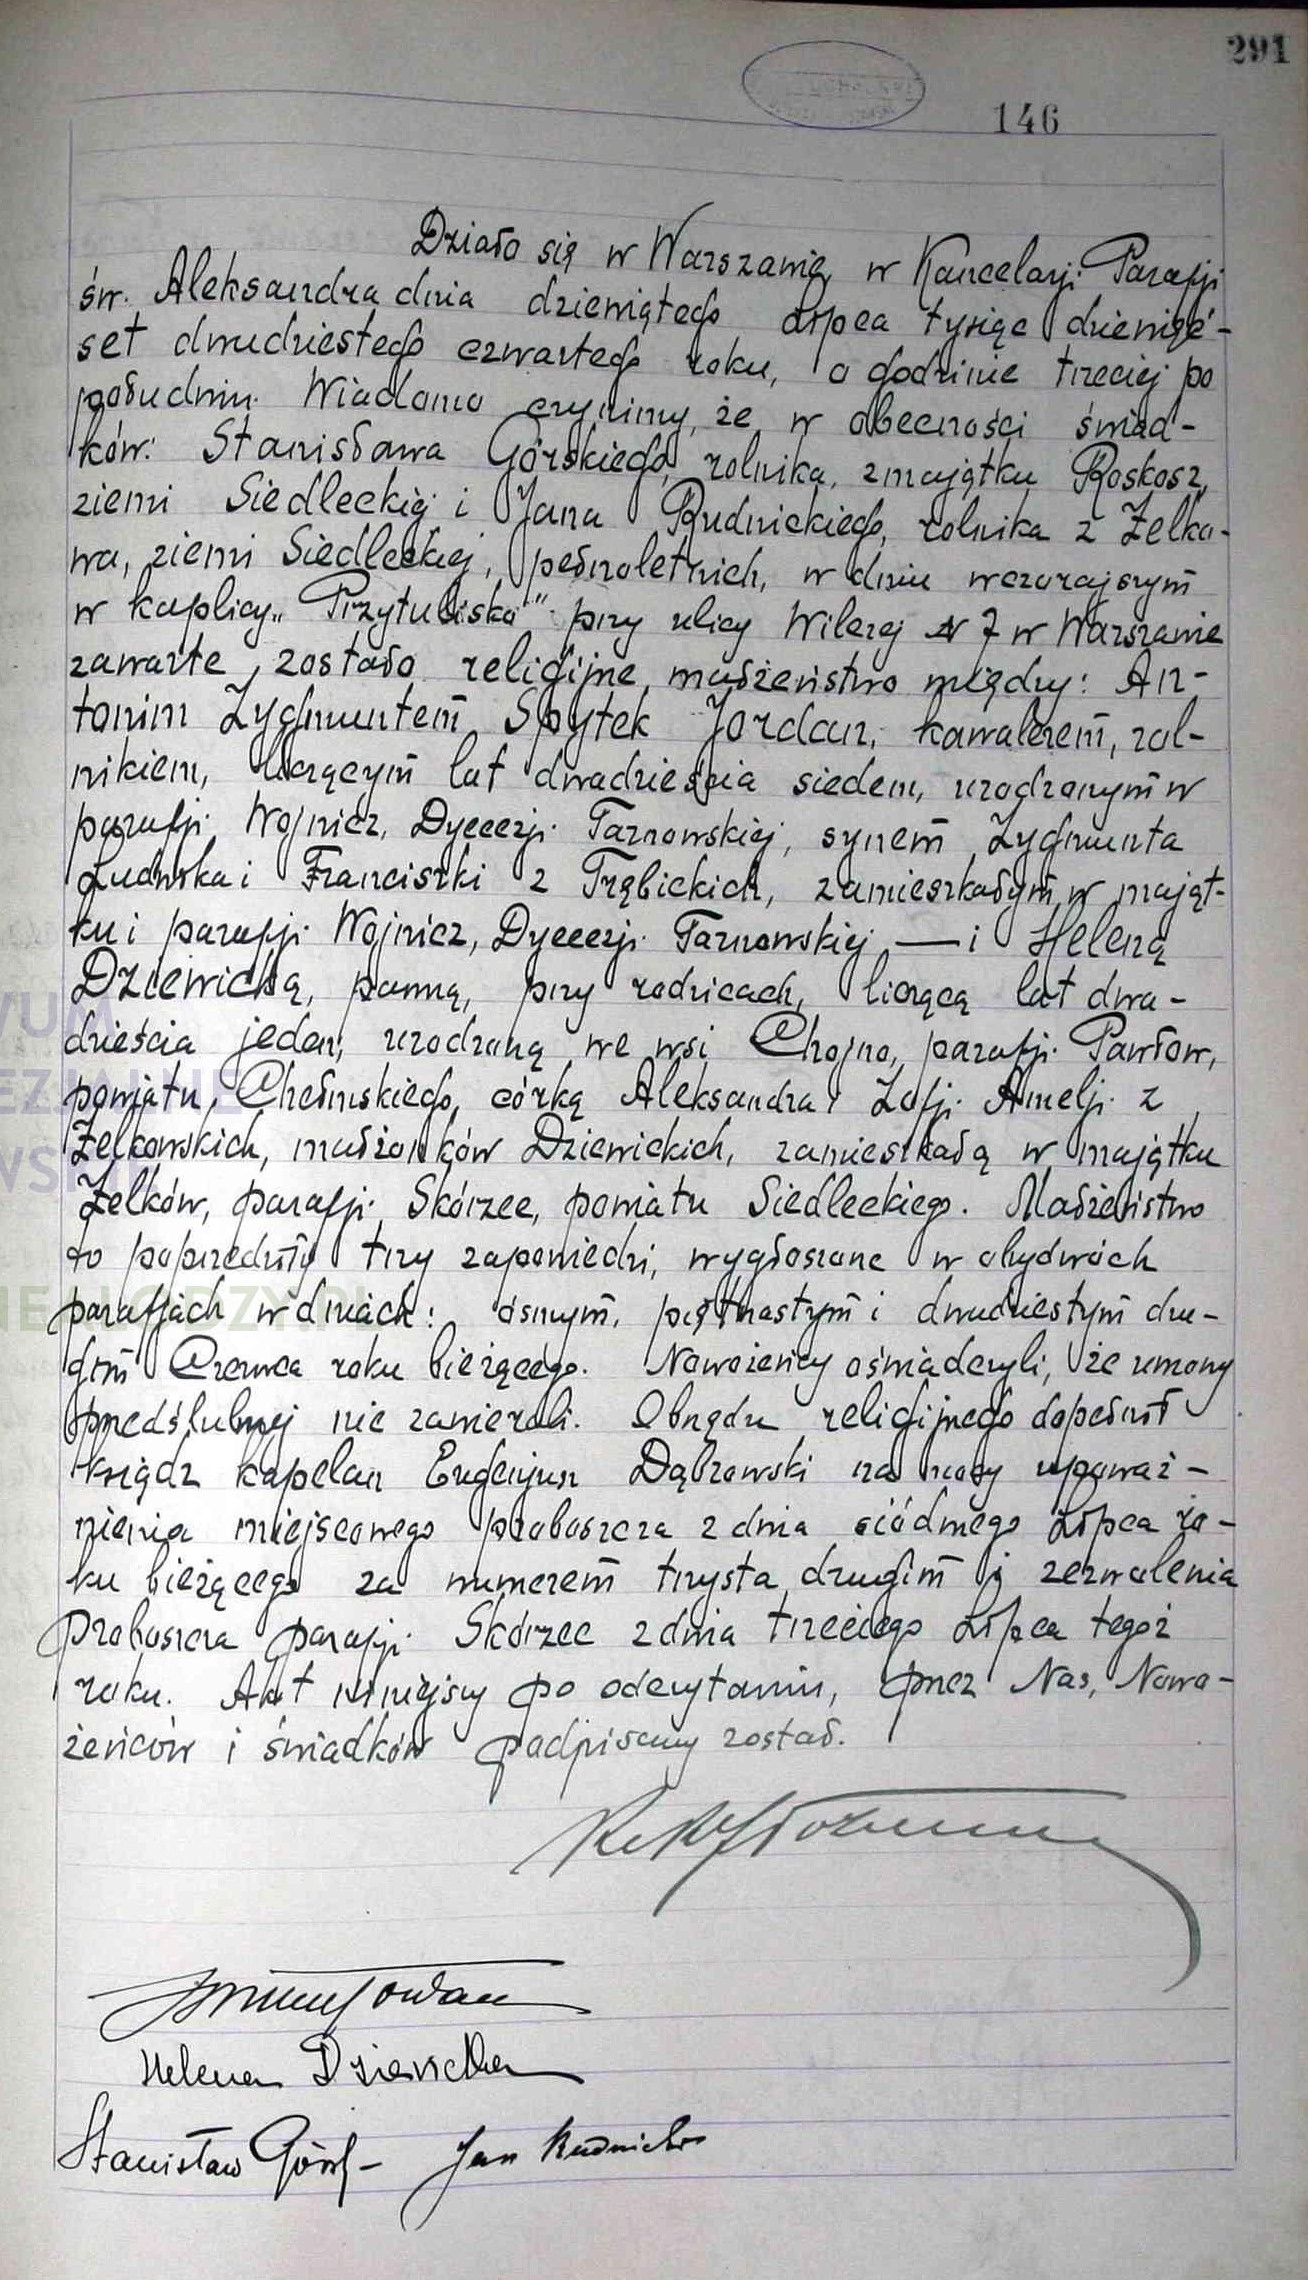 291
146
Działo się w Warszawie, w Kancelarji Parafji
św. Aleksandra dnia dziewiątego Lipca tysiąc dziewięć-
set dwudziestego czwartego roku, o godzinie trzeciej po
południu. Wiadomo czynimy, że w obecności świad-
ków: Stanisława Górskiego, rolnika, z majątku Roskosz,
ziemi Siedleckiej i Jana Rudnickiego, rolnika z Żelko-
wa, ziemi Siedleckiej, pełnoletnich, w dniu wczorajszym
w kaplicy „Przytuliska" przy ulicy Wilczej № 7 w Warszawie
zawarte zostało religijne małżeństwo między: An-
tonim Zygmuntem Spytek Jordan, kawalerem, rol-
nikiem, liczącym lat dwadzieścia siedem, urodzonym w
parafji Wojnicz, Dyecezji Tarnowskiej, synem Zygmunta
Ludwika i Franciszki z Trębickich, zamieszkałym w mająt-
ku i parafji Wojnicz, Dyecezji Tarnowskiej — i Heleną
Dziewicką, panną, przy rodzicach, liczącą lat dwa-
dzieścia jeden, urodzoną we wsi Chojno, parafji Pawłow,
powiatu Chełmskiego, córką Aleksandra i Zofji Amelji z
Żelkowskich, małżonków Dziewickich, zamieszkałą w majątku
Żelków, parafji Skórzec, powiatu Siedleckiego. Małżeństwo
to poprzedziły trzy zapowiedzi, wygłoszone w obydwóch
parafjach w dniach: ósmym, piętnastym i dwudziestym dru-
gim Czerwca roku bieżącego. Nowożeńcy oświadczyli, że umowy
przedślubnej nie zawierali. Obrzędu religijnego dopełnił
ksiądz kapelan Eugenjusz Dąbrowski na mocy upoważ-
nienia miejscowego proboszcza z dnia siódmego Lipca ro-
ku bieżącego za numerem trzysta drugim i zezwolenia
Proboszcza parafji Skórzec z dnia trzeciego Lipca tegoż
roku. Akt niniejszy po odczytaniu, przez Nas, Nowo-
żeńców i świadków podpisany został.
Jordan
Helena Dziewicka
Stanisław Górski Jan Rudnicki